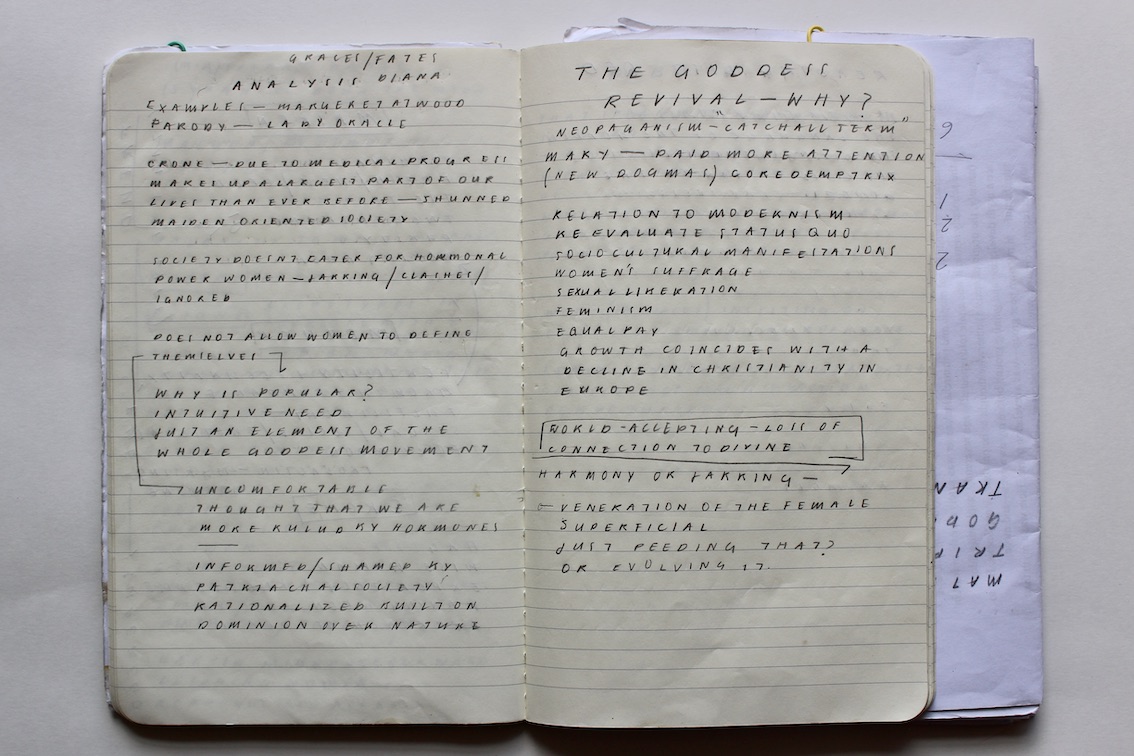 GRACES/FATES
ANALYSIS DIANA
EXAMPLES — MARGERET ATWOOD
PARODY — LADY ORACLE
CRONE — DUE TO MEDICAL PROGRESS
MAKES UP A LARGEST PART OF OUR
LIVES THAN EVER BEFORE — SHUNNED
MAIDEN ORIENTED SOCIETY
SOCIETY DOESNT CATER FOR HORMONAL
POWER WOMEN — JARRING/CLASHES/
IGNORED
DOES NOT ALLOW WOMEN TO DEFINE
THEMSELVES
WHY IS POPULAR?
INTUITIVE NEED
JUST AN ELEMENT OF THE
WHOLE GODDESS MOVEMENT
UNCOMFORTABLE
THOUGHT THAT WE ARE
MORE RULUD BY HORMONES
INFORMED/SHAMED BY
PATRIACHAL SOCIETY
RATIONALIZED BUILT ON
DOMINION OVER NATURE
THE GODDESS
REVIVAL — WHY?
NEOPAGANISM — "CATCHALL TERM"
MARY — PAID MORE ATTENTION
(NEW DOGMAS) COREDEMPTRIX
RELATION TO MODERNISM
RE EVALUATE STATUS QUO
SOCIOCULTURAL MANIFESTATIONS
WOMEN'S SUFFRAGE
SEXUAL LIBERATION
FEMINISM
EQUAL PAY
GROWTH COINCIDES WITH A
DECLINE IN CHRISTIANITY IN
EUROPE
WORLD-ACCEPTING — LOSS OF
CONNECTION TO DIVINE
HARMONY OR JARRING —
VENERATION OF THE FEMALE
SUPERFICIAL
JUST FEEDING THAT?
OR EVOLVING IT.
6
1
2
2
TRAN
GOD
TRIP
MAT